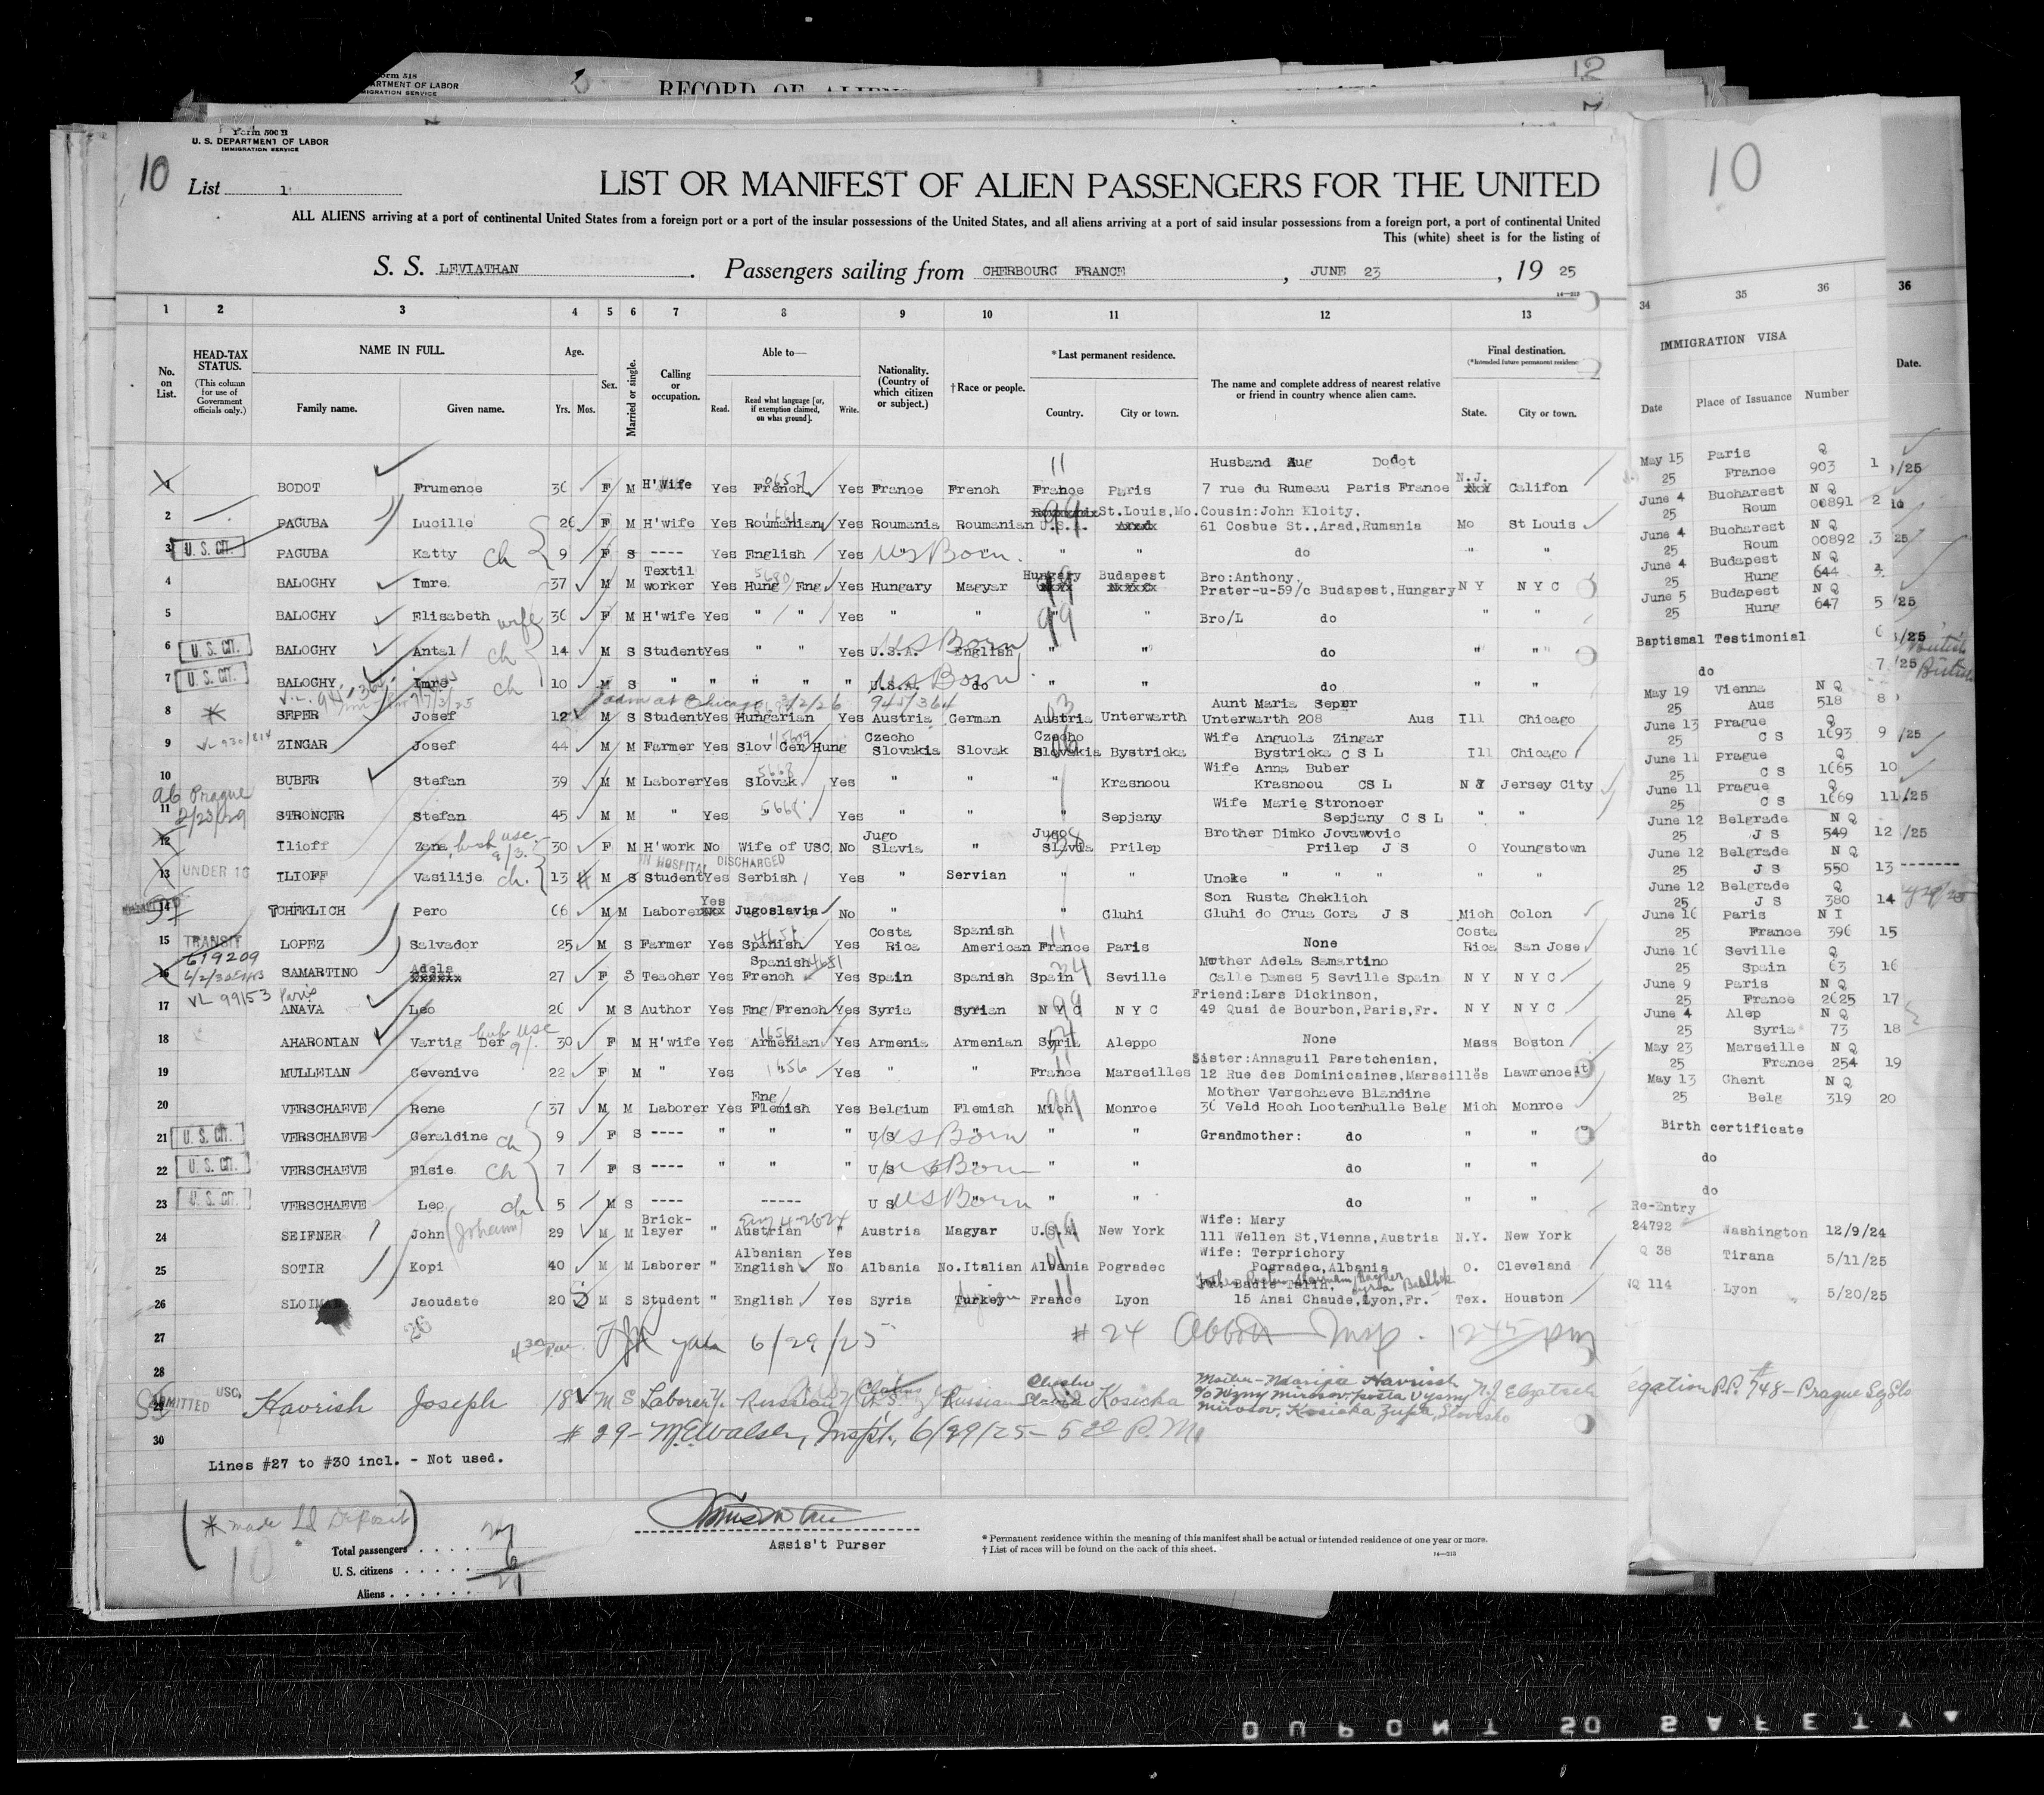 Form 518
DEPARTMENT OF LABOR
IMMIGRATION SERVICE
RECORD OF ALIENS
12
Form 500 B
U. S. DEPARTMENT OF LABOR
IMMIGRATION SERVICE
10
List 1
LIST OR MANIFEST OF ALIEN PASSENGERS FOR THE UNITED
ALL ALIENS arriving at a port of continental United States from a foreign port or a port of the insular possessions of the United States, and all aliens arriving at a port of said insular possessions from a foreign port, a port of continental United
This (white) sheet is for the listing of
S. S. LEVIATHAN . Passengers sailing from CHERBOURG FRANCE , JUNE 23 , 19 25
10
1 2 3 4 5 6 7 8 9 10 11 12 13 34 35 36 36
No. on List.
HEAD-TAX STATUS.
(This column for use of Government officials only.)
NAME IN FULL.
Family name. Given name.
Age.
Yrs. Mos.
Sex.
Married or single.
Calling or occupation.
Able to—
Read. Read what language [or, if exemption claimed, on what ground]. Write.
Nationality. (Country of which citizen or subject.)
†Race or people.
*Last permanent residence.
Country. City or town.
The name and complete address of nearest relative or friend in country whence alien came.
Final destination.
(*Intended future permanent residence)
State. City or town.
IMMIGRATION VISA
Date Place of Issuance Number
Date.
1 BODOT Frumence 36 F M H'Wife Yes French Yes France French France Paris Husband Aug Dodot 7 rue du Rumeau Paris France N.J. Califon May 15 25 Paris France Q 903 1
2 PAGUBA Lucille 26 F M H'wife Yes Roumanian Yes Roumania Roumanian U.S.A. St.Louis,Mo. Cousin:John Kloity. 61 Cosbue St.,Arad,Rumania Mo St Louis June 4 25 Bucharest Roum N Q 00891 2
3 U. S. CIT. PAGUBA Katty ch 9 F S ---- Yes English Yes US Born " " do " " June 4 25 Bucharest Roum N Q 00892 3
4 BALOGHY Imre 37 M M Textil worker Yes Hung Eng Yes Hungary Magyar Hungary Budapest Bro:Anthony. Prater-u-59/c Budapest,Hungary N Y N Y C June 4 25 Budapest Hung N Q 644 4
5 BALOGHY Elisabeth wife 36 F M H'wife Yes " " Yes " " 99 " Bro/L do " " June 5 25 Budapest Hung N Q 647 5
6 U. S. CIT. BALOGHY Antal ch 14 M S Student Yes " " Yes U.S.A. English US Born " " do " " Baptismal Testimonial 6
7 U. S. CIT. BALOGHY Imre ch 10 M S " " " " " U.S.A. do US Born " " do " " do 7
8 SEPER Josef 12 M S Student Yes Hungarian Yes Austria German Austria Unterwarth Aunt Maria Seper Unterwarth 208 Aus Ill Chicago May 19 25 Vienna Aus N Q 518 8
9 VL 930/814 ZINGAR Josef 44 M M Farmer Yes Slov Ger Hung Czecho Slovakia Slovak Czecho Slovakia Bystricka Wife Anguola Zingar Bystricka C S L Ill Chicago June 13 25 Prague C S Q 1693 9
10 BUBER Stefan 39 M M Laborer Yes Slovak 5668 Yes " " " Krasnoou Wife Anna Buber Krasnoou CS L N J Jersey City June 11 25 Prague C S Q 1665 10
ab Prague 2/23/29
11 STRONCER Stefan 45 M M " Yes Yes " " " Sepjany Wife Marie Stroncer Sepjany C S L " " June 11 25 Prague C S Q 1669 11
12 Ilioff Zena 30 F M H'work No Wife of USC No Jugo Slavia " Jugo Slavia Prilep Brother Dimko Jovawovic Prilep J S O Youngstown June 12 25 Belgrade J S N Q 549 12
IN HOSPITAL DISCHARGED
13 UNDER 16 ILIOFF Vasilije ch. 13 M S Student Yes Serbish Yes " Servian " " Uncke " " " " " June 12 25 Belgrade J S N Q 550 13
14 TCHEKLICH Pero 66 M M Laborer Yes Jugoslavia No " " Gluhi Son Rusta Cheklich Gluhi do Crus Gora J S Mich Colon June 12 25 Belgrade J S Q 380 14
15 TRANSIT LOPEZ Salvador 25 M S Farmer Yes Spanish Yes Costa Rica Spanish American France Paris None Costa Rica San Jose June 16 25 Paris France N I 396 15
619209
16 SAMARTINO Adela 27 F S Teacher Yes Spanish French Yes Spain Spanish Spain Seville Mother Adela Samartino Calle Dames 5 Seville Spain N Y N Y C June 16 25 Seville Spain Q 63 16
VL 99153 Paris
17 ANAVA Leo 26 M S Author Yes Eng French Yes Syria Syrian N Y C N Y C Friend:Lars Dickinson, 49 Quai de Bourbon,Paris,Fr. N Y N Y C June 9 25 Paris France N Q 2625 17
18 AHARONIAN Vartig Der 30 F M H'wife Yes Armenian Yes Armenia Armenian Syria Aleppo None Mass Boston June 4 25 Alep Syria N Q 73 18
19 MULLEIAN Gevenive 22 F M " Yes 1656 Yes " " France Marseilles Sister:Annaguil Paretchenian, 12 Rue des Dominicaines,Marseilles " Lawrence May 23 25 Marseille France N Q 254 19
20 VERSCHAEVE Rene 37 M M Laborer Yes Eng/ Flemish Yes Belgium Flemish Mich Monroe Mother Verschaeve Blandine 36 Veld Hoch Lootenhulle Belg Mich Monroe May 13 25 Ghent Belg N Q 319 20
21 U. S. CIT. VERSCHAEVE Geraldine ch 9 F S ---- " " " U S US Born " " Grandmother: do " " Birth certificate
22 U. S. CIT. VERSCHAEVE Elsie ch 7 F S ---- " " " U S US Born " " do " " do
23 U. S. CIT. VERSCHAEVE Leo ch 5 M S ---- ----- U S US Born " " do " " do
24 SEIFNER John (Johann) 29 M M Brick-layer " Austrian " Austria Magyar U.S.A. New York Wife: Mary 111 Wellen St,Vienna,Austria N.Y. New York Re-Entry 24792 Washington 12/9/24
25 SOTIR Kopi 40 M M Laborer " Albanian English Yes No Albania No.Italian Albania Pogradec Wife: Terprichory Pogradec,Albania O. Cleveland Q 38 Tirana 5/11/25
26 SLOIMAN Jaoudate 20 M S Student " English Yes Syria Turkey France Lyon 15 Anai Chaude,Lyon,Fr. Tex. Houston NQ 114 Lyon 5/20/25
27 6/29/25 # 24 Abbott Insp. 1245 pm
28
29 ADMITTED USC. Havrish Joseph 18 M S Laborer Russian Russian Kosicka Mother - Marija Havrish N.J. P.P. # 748 - Prague
30 # 29 - M.E. Walsh, Insp't., 6/29/25 - 5 P.M.
Lines #27 to #30 incl. - Not used.
(* made Deposit)
10
Total passengers . . . . .
U. S. citizens . . . . . 6
Aliens . . . . . . 21
Assis't Purser
*Permanent residence within the meaning of this manifest shall be actual or intended residence of one year or more.
†List of races will be found on the back of this sheet.
14—213
DUPONT SD SAFETY